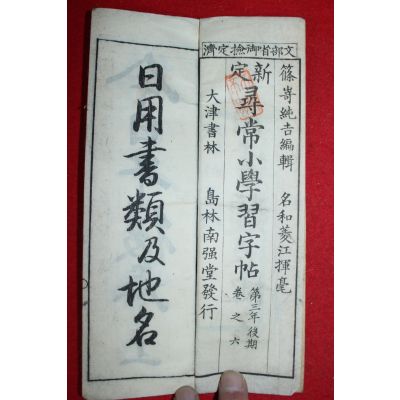 文部省御撿定濟
篠嵜純吉編輯　名和菱江揮毫
新定尋常小學習字帖　第三年後期　卷之六
大津書林　島林南强堂發行
日用書類及地名